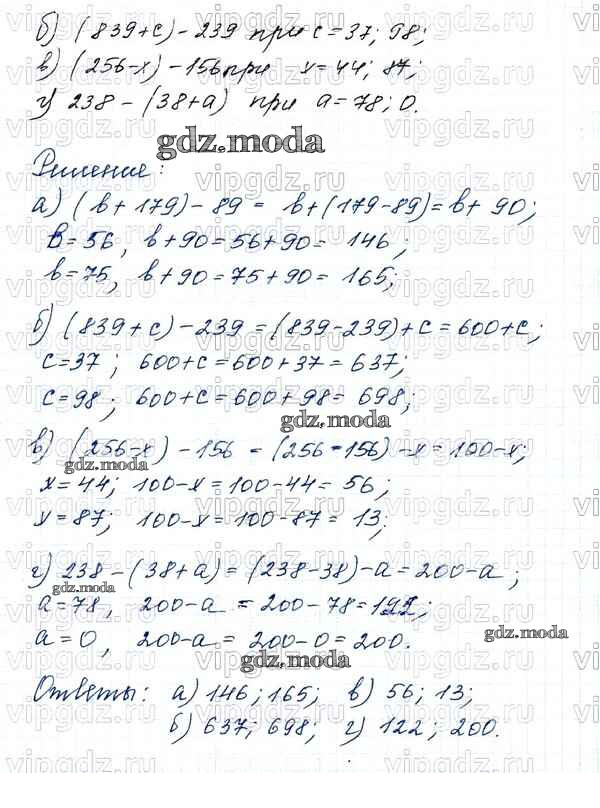 б) (839+c)-239 при c=37; 98;
в) (256-x)-156 при x=44; 87;
г) 238-(38+a) при a=78; 0.
gdz.moda
Решение:
а) (b+179)-89 = b+(179-89)=b+90;
b=56, b+90=56+90= 146;
b=75, b+90=75+90= 165;
б) (839+c)-239=(839-239)+c=600+c;
c=37; 600+c=600+37=637;
c=98; 600+c=600+98= 698;
gdz.moda
в) (256-x)-156 = (256-156)-x=100-x;
gdz.moda
x=44; 100-x=100-44= 56;
x=87; 100-x=100-87= 13;
г) 238-(38+a)=(238-38)-a=200-a;
gdz.moda
a=78, 200-a = 200-78=122;
a=0, 200-a = 200-0=200.
gdz.moda
gdz.moda
Ответы: а) 146; 165; в) 56; 13;
б) 637; 698; г) 122; 200.
vipgdz.ru